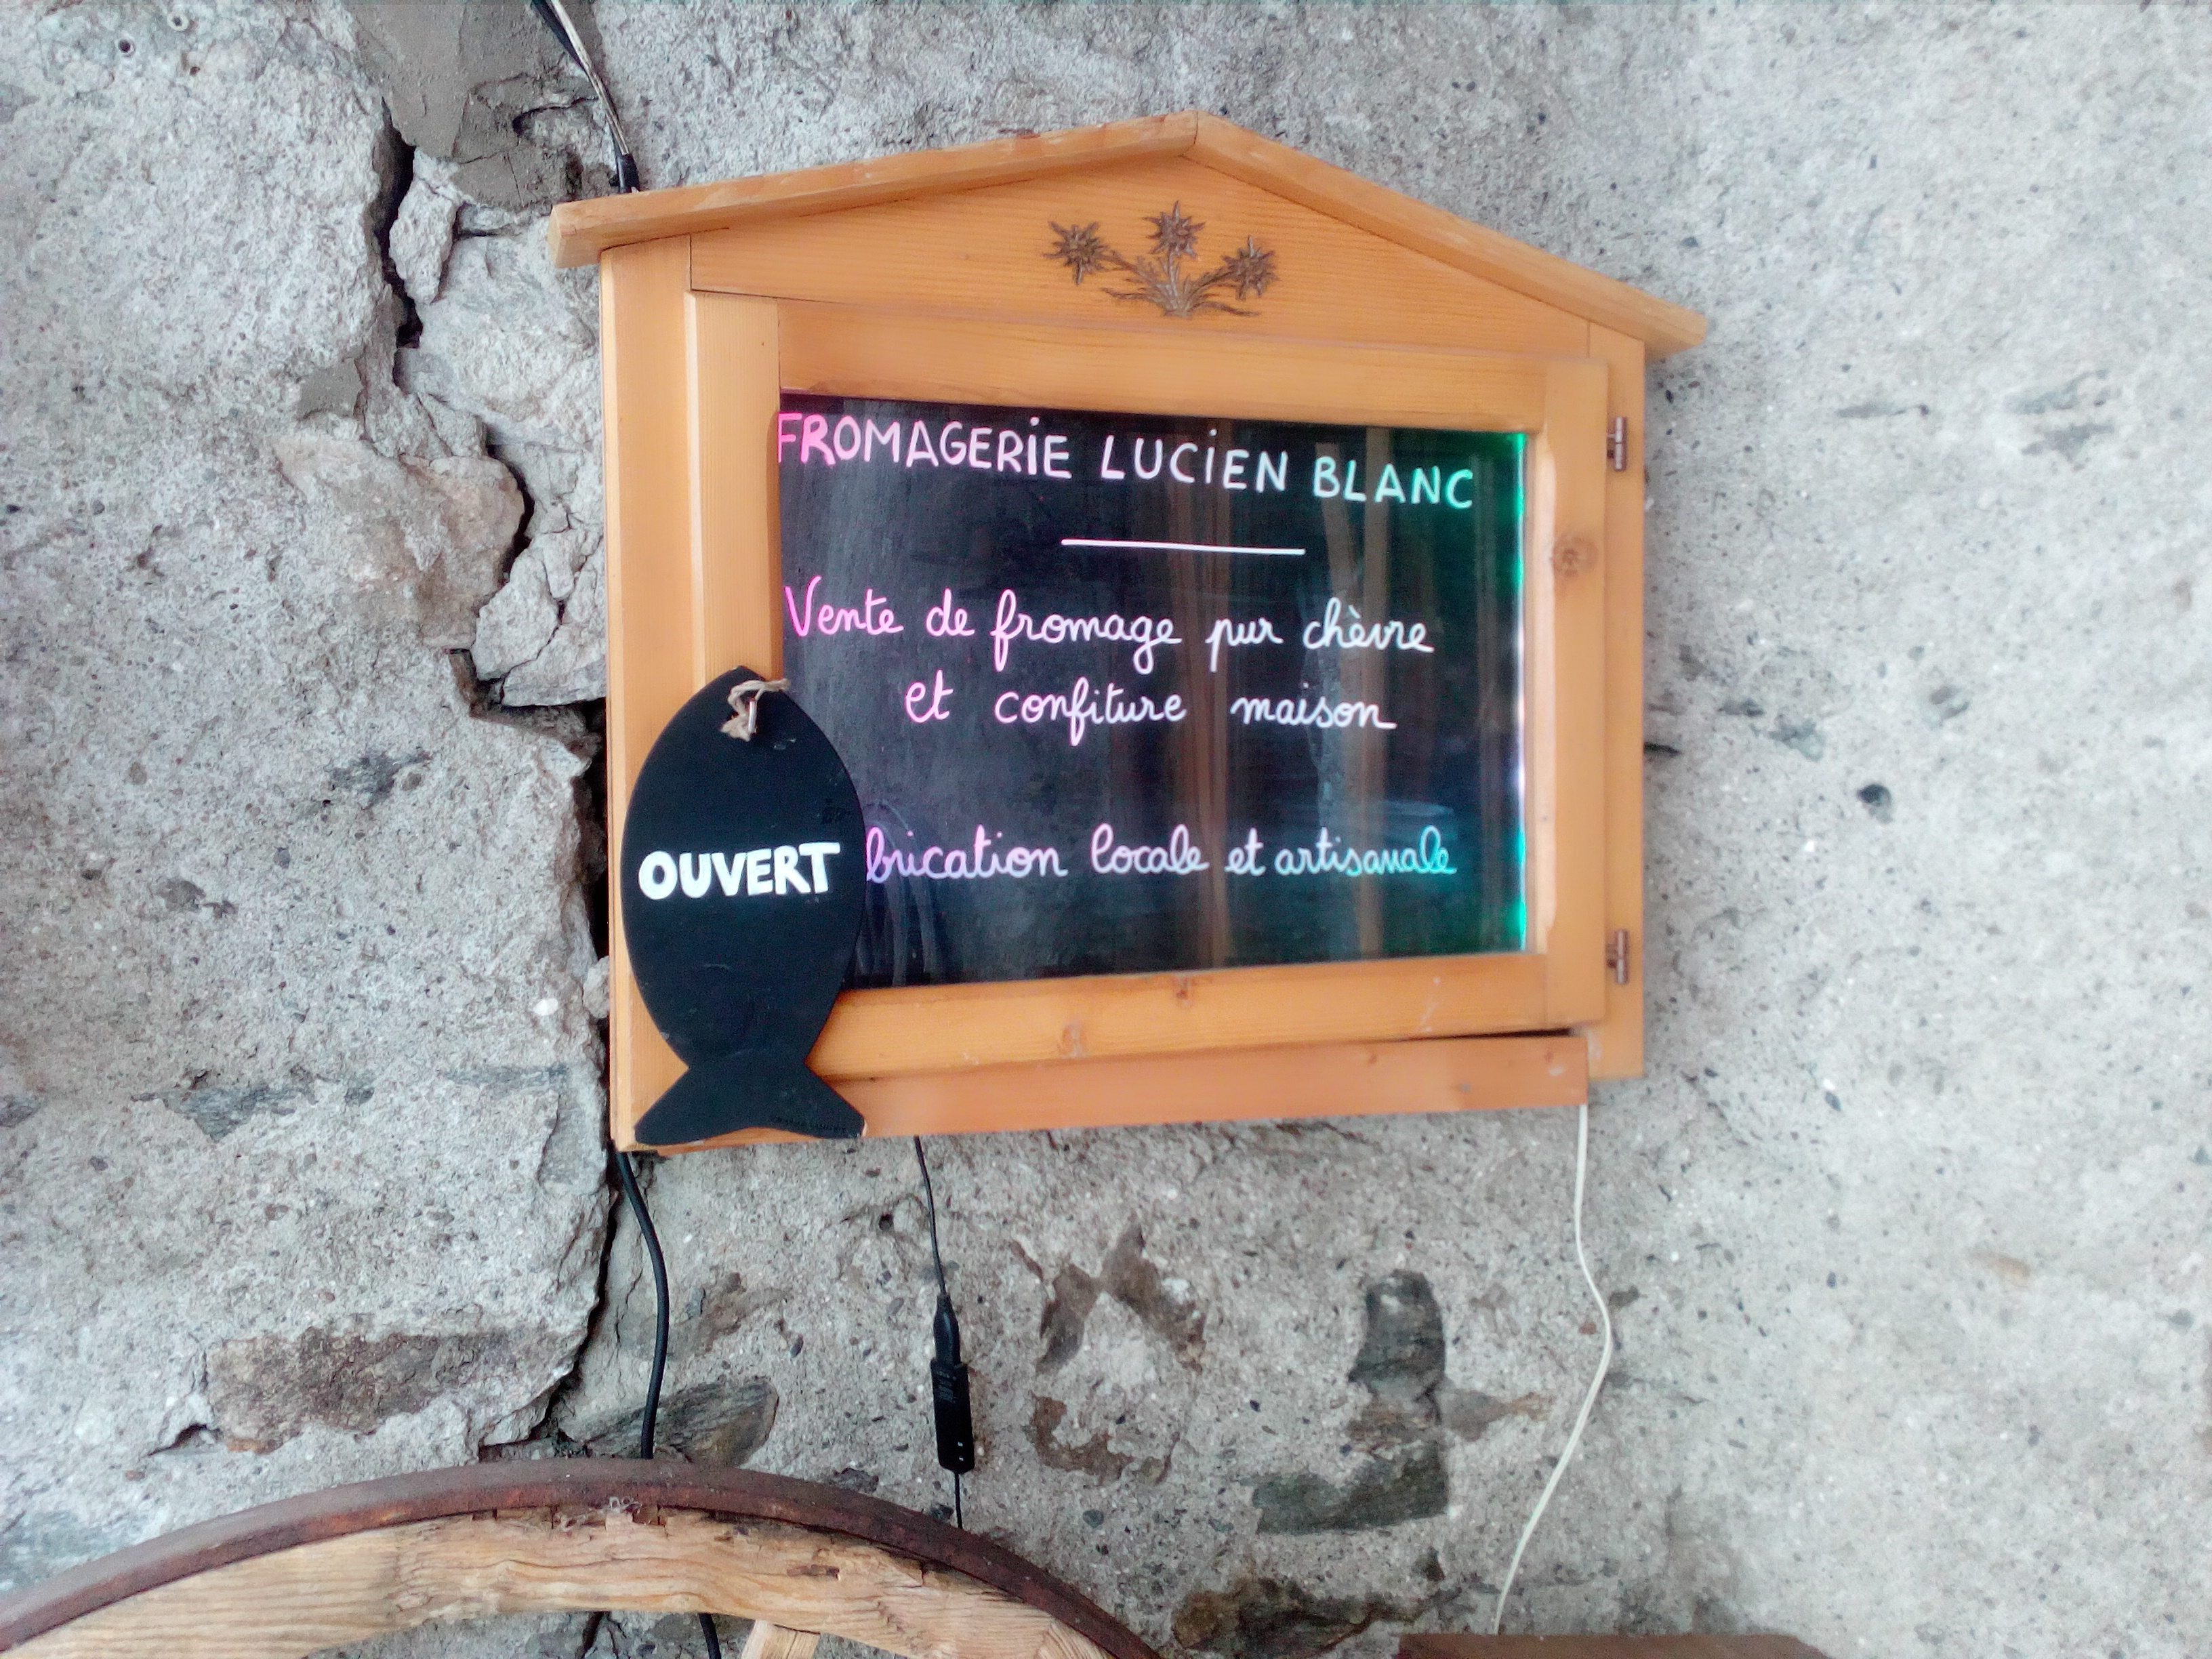 FROMAGERIE LUCIEN BLANC
Vente de fromage pur chèvre
et confiture maison
OUVERT
brication locale et artisanale